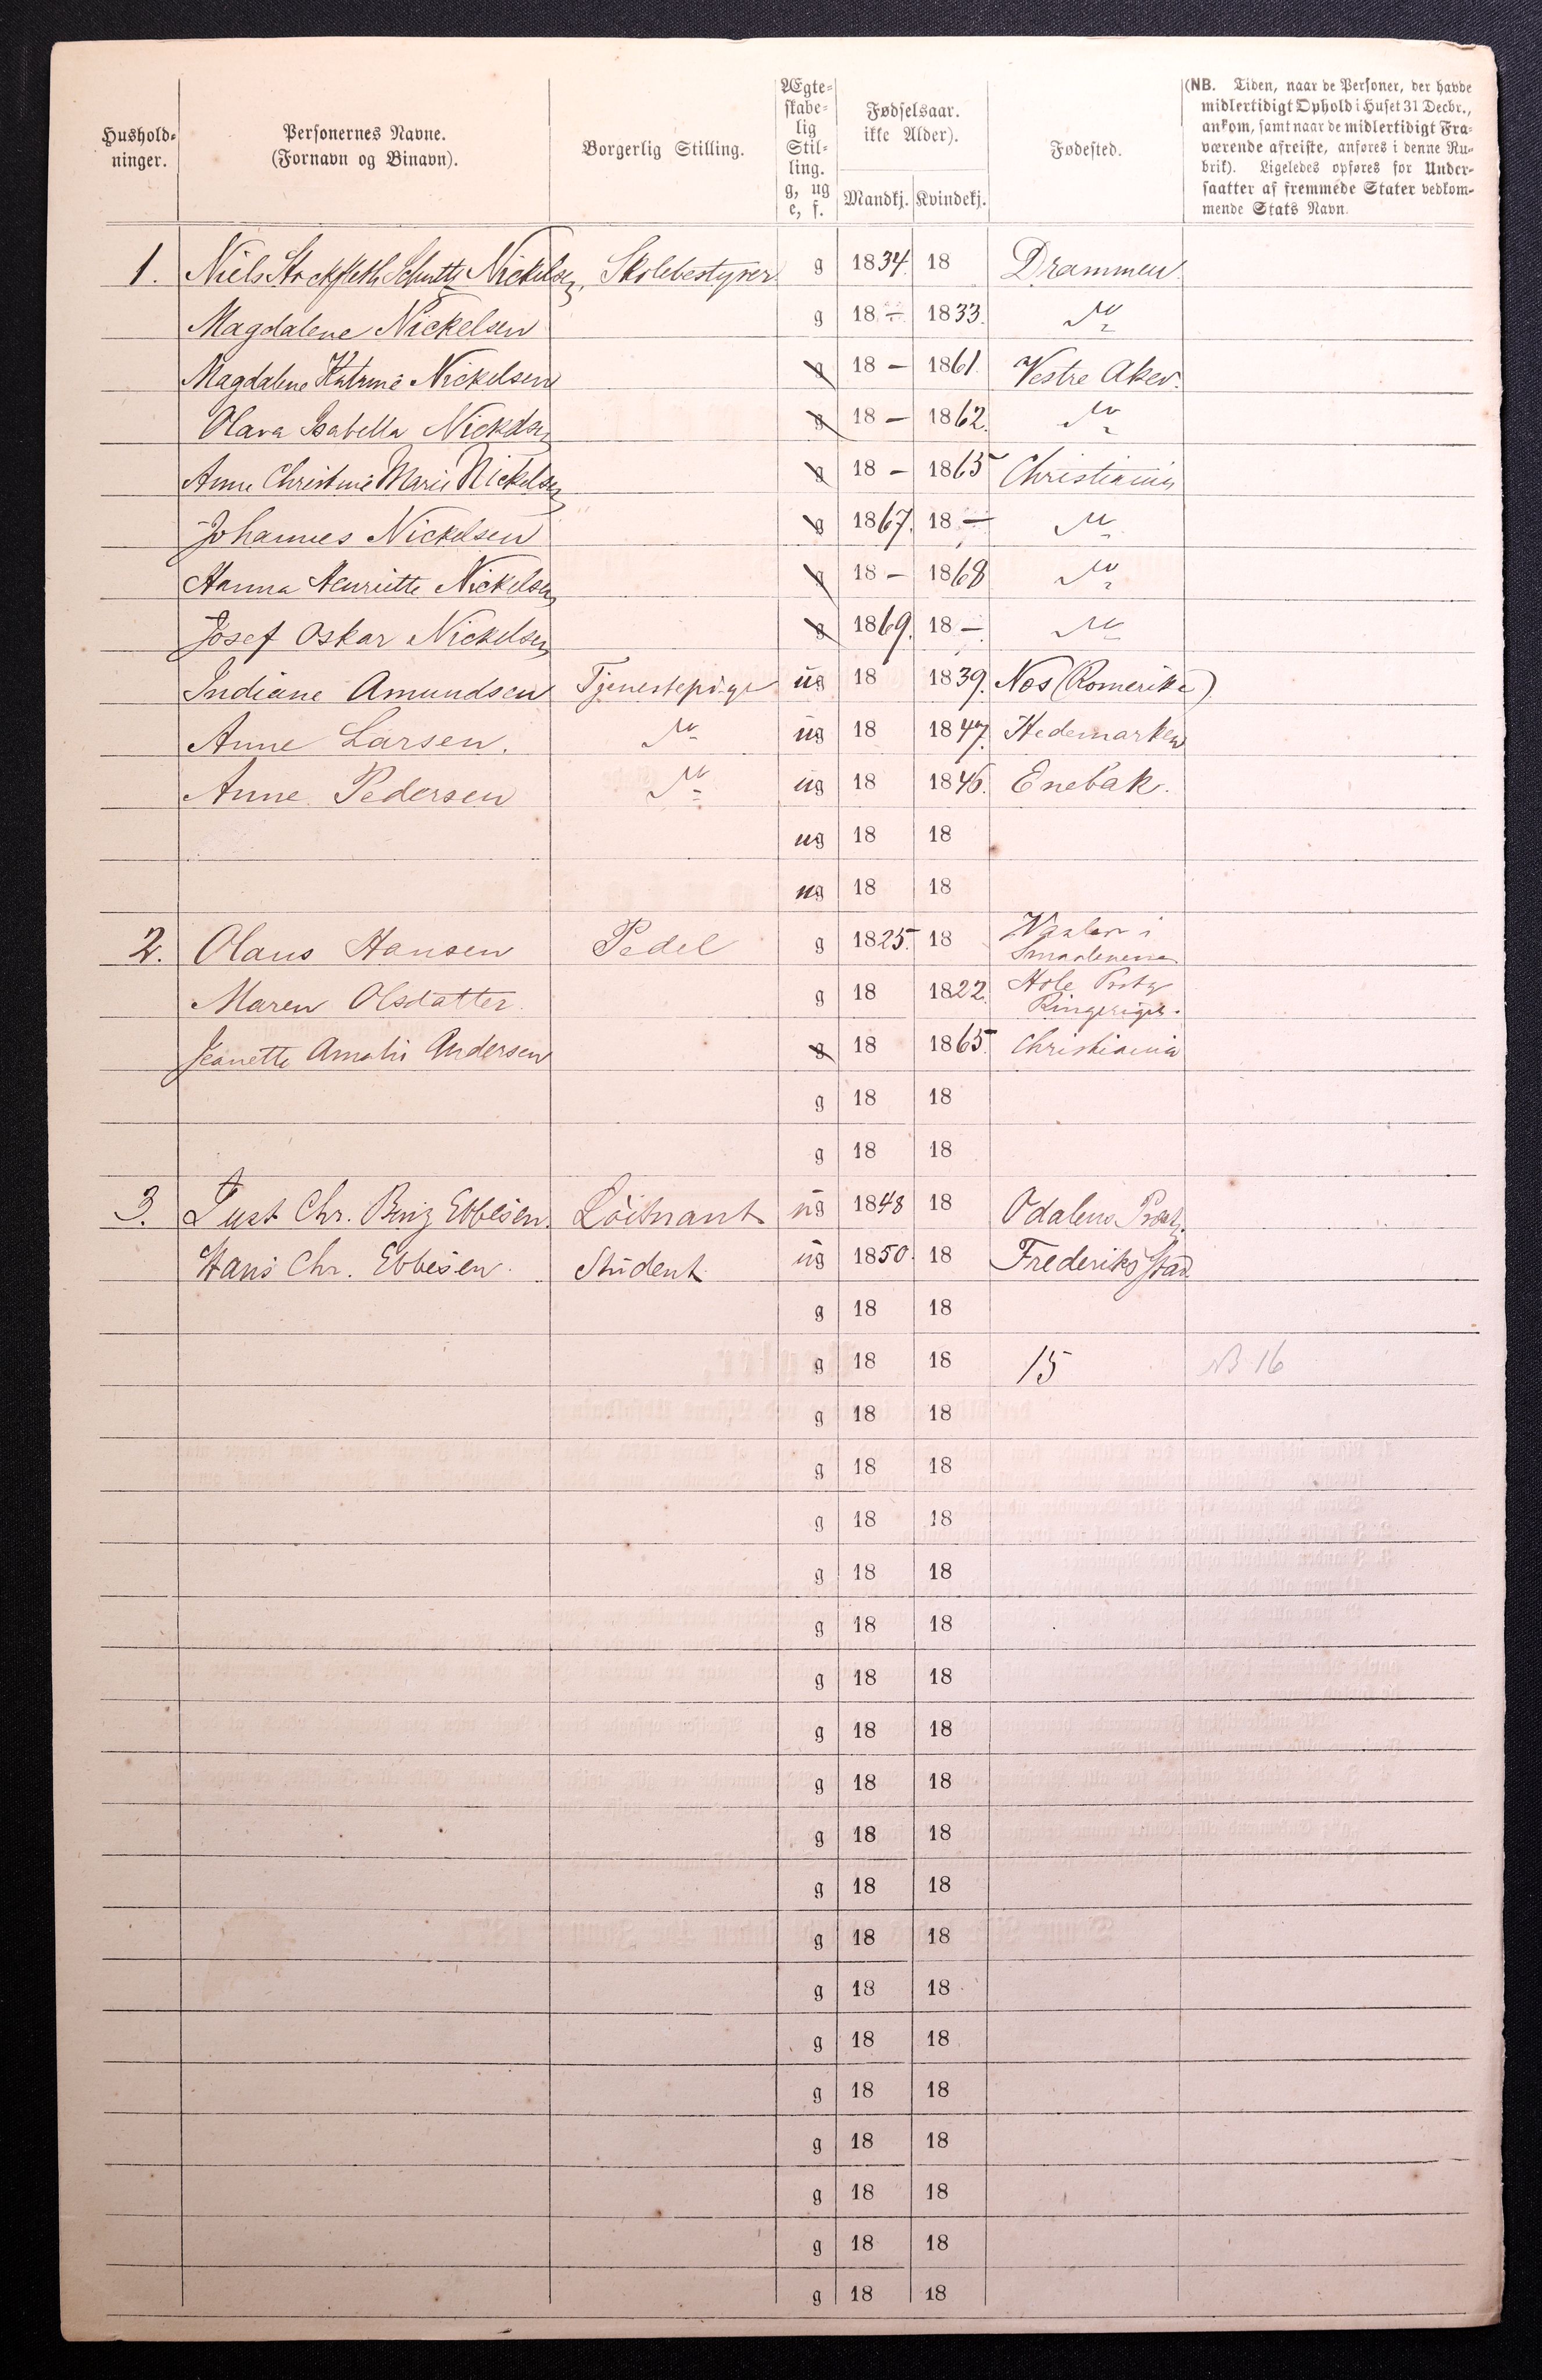 Hushold-
ninger.
Personernes Navne.
(Fornavn og Binavn).
Borgerlig Stilling.
Ægte-
skabe-
lig
Stil-
ling.
g, ug
e, f.
Fødselsaar.
ikke Alder).
Mandkj. Kvindekj.
Fødested.
(NB. Tiden, naar de Personer, der havde
midlertidigt Ophold i Huset 31 Decbr.,
ankom, samt naar de midlertidigt Fra-
værende afreiste, anføres i denne Ru-
brik). Ligeledes opføres for Under-
saatter af fremmede Stater vedkom-
mende Stats Navn.
1. Niels Stockfleth Schultz Nickelsen, Skolebestyrer g 1834. 18 Drammen.
Magdalene Nickelsen g 18 – 1833. do
Magdalene Katrine Nickelsen g 18 – 1861. Vestre Aker.
Olava Isabella Nickelsen g 18 – 1862. do
Anne Christine Marie Nickelsen g 18 – 1865 Christiania
Johannes Nickelsen g 1867. 18 – do
Hanna Henriette Nickelsen g 18 – 1868 do
Josef Oskar Nickelsen g 1869. 18 – do
Indiane Amundsen Tjenestepige ug 18 1839. Nes (Romerike)
Anne Larsen. do ug 18 1847. Hedemarken
Anne Pedersen do ug 18 1846. Enebak.
ug 18 18
ug 18 18
2. Olaus Hansen Pedel g 1825. 18 Vaaler i
Smaalenene
Maren Olsdatter. g 18 1822. Hole Prstg
Ringerige.
Jeanette Amalie Andersen g 18 1865. Christiania
g 18 18
g 18 18
3. Just Chr. Ebbesen. Löitnant ug 1848 18 Odalens Præst.
Hans Chr. Ebbesen. Student ug 1850. 18 Frederiksstad
g 18 18
g 18 18 15 NB 16
g 18 18
g 18 18
g 18 18
g 18 18
g 18 18
g 18 18
g 18 18
g 18 18
g 18 18
g 18 18
g 18 18
g 18 18
g 18 18
g 18 18
g 18 18
g 18 18
g 18 18
g 18 18